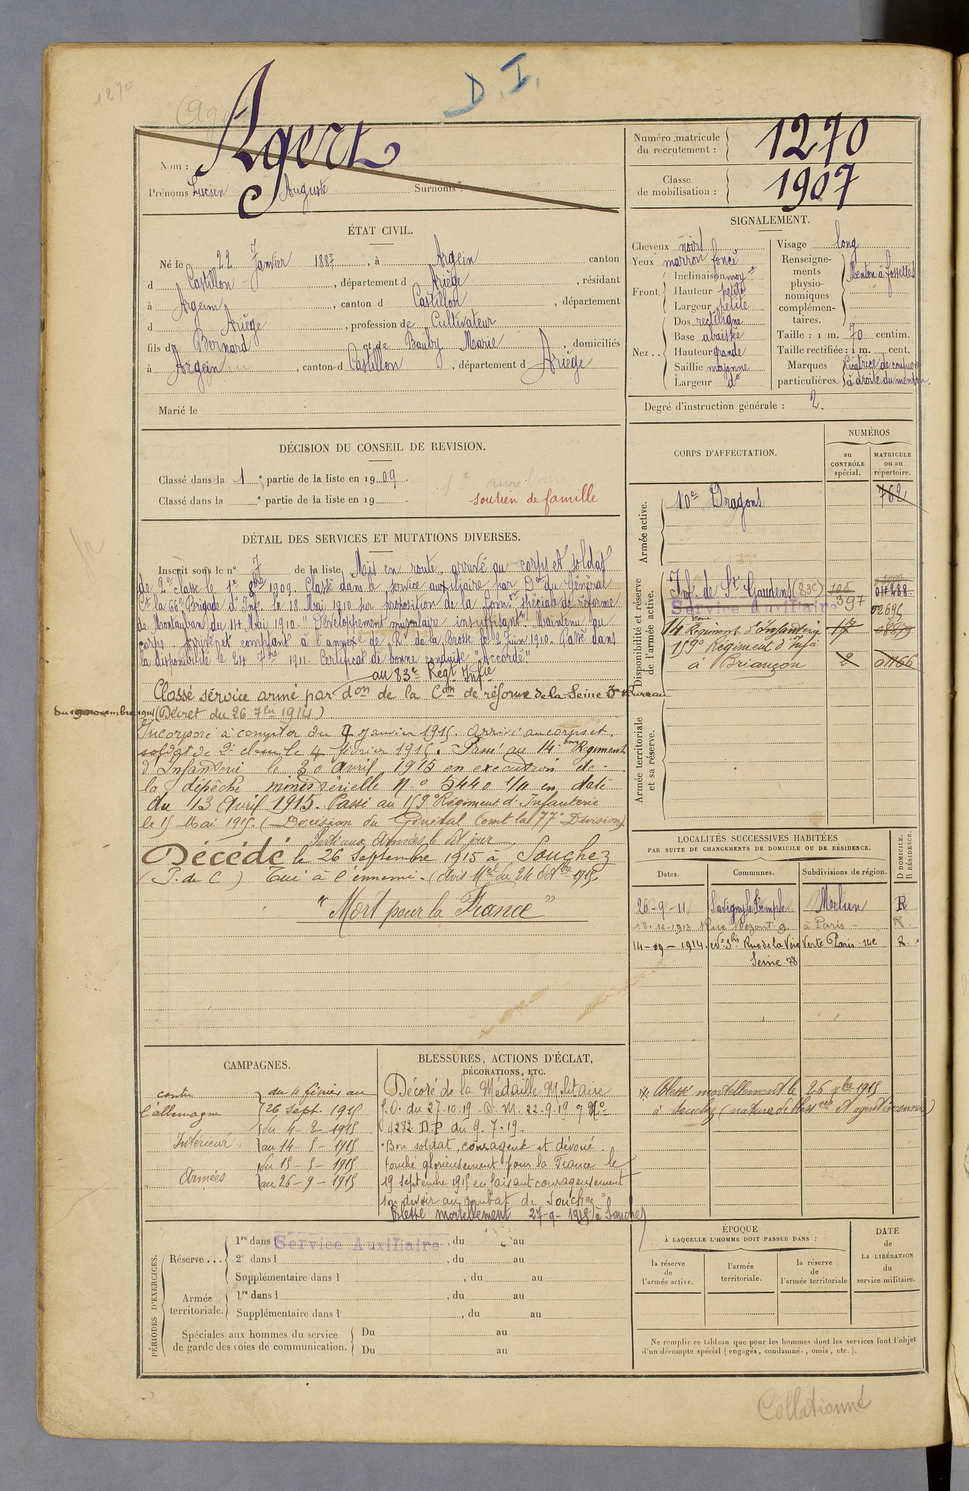 1270
D.I.
Nom : Agert
Prénoms Lucien Auguste Surnoms :
Numéro matricule du recrutement : 1270
Classe de mobilisation : 1907
ÉTAT CIVIL.
Né le 22 Janvier 1887, à Argein canton
d Castillon, département d Ariège, résidant
à Argein, canton d Castillon, département
d Ariège, profession de Cultivateur
fils de Bernard et de Bauby Marie, domiciliés
à Argein, canton d Castillon, département d Ariège
Marié le
SIGNALEMENT.
Cheveux noirs
Yeux marron foncé
Front. Inclinaison moy
Hauteur petite
Largeur petite
Nez... Dos rectiligne
Base abaissée
Hauteur grande
Saillie moyenne
Largeur do
Visage long
Renseignements physionomiques complémentaires. Menton à fossettes
Taille : 1 m. 70 centim.
Taille rectifiée : 1 m. cent.
Marques particulières. Cicatrice de coupure à droite du menton.
Degré d'instruction générale : 2.
DÉCISION DU CONSEIL DE REVISION.
Classé dans la 1 e partie de la liste en 1909.
Classé dans la e partie de la liste en 19
soutien de famille
DÉTAIL DES SERVICES ET MUTATIONS DIVERSES.
Inscrit sous le no 7 de la liste Mis en route, arrivé au corps et soldat
de 2e classe le 1er 8bre 1909. Classé dans le service auxiliaire par Don du Général
Ct la 66e Brigade d'Inf. le 18 Mai 1910 sur proposition de la Comon spéciale de réforme
de Montauban du 14 Mai 1910. "Développement musculaire insuffisant" Maintenu au
corps. comptant à l'annexe de Rt de la Brosse le 2 Juin 1910. Passé dans
la disponibilité le 24 7bre 1911. Certificat de bonne conduite "Accordé"
au 83e Régt Infie
Classé service armé par don de la Con de réforme de la Seine 3e Bureau
du 19 novembre 1914 (Décret du 26 7bre 1914)
Incorporé à compter du 9 janvier 1915. arrivé au corps et
soldat de 2e classe le 4 février 1915. Passé au 14eme Régiment
d'Infanterie le 30 avril 1915 en exécution de
la dépêche ministérielle No 5440 1/11 en date
du 13 Avril 1915. Passé au 159e Régiment d'Infanterie
le 15 Mai 1915. (Décision du Général Comt la 77e Division)
Parti aux Armées le dit jour
Décédé le 26 Septembre 1915 à Souchez
(P. de C.) Tué à l'ennemi. (Avis Mel du 24 Obre 1915.
"Mort pour la France"
CORPS D'AFFECTATION.
NUMÉROS
au CONTRÔLE spécial.
MATRICULE ou au répertoire.
Armée active.
10e Dragons 762
Disponibilité et réserve de l'armée active.
Inf. de St Gaudens (83e)
Service Auxiliaire 397 02696
14eme Régiment d'Infanterie
159e Régiment d'Infie
à Briançon 2 01166
Armée territoriale et sa réserve.
LOCALITÉS SUCCESSIVES HABITÉES
PAR SUITE DE CHANGEMENTS DE DOMICILE OU DE RÉSIDENCE.
Dates. Communes. Subdivisions de région. D DOMICILE. R RÉSIDENCE.
26-9-11 Savigny le Temple Melun R
18-12-1913 à Paris R.
14-09-1914. No 3 bis Rue de la Voie Verte Paris 14e R.
Seine
Blessé mortellement le 26 7bre 1915
à Souchez (nature de bless res et agent inconnus)
CAMPAGNES.
contre l'allemagne du 4 février au 26 sept. 1915
Intérieur du 4-2-1915 au 14-5-1915
Armées du 15-5-1915 au 26-9-1915
BLESSURES, ACTIONS D'ÉCLAT,
DÉCORATIONS, ETC.
Décoré de la Médaille Militaire
J.O. du 27.10.19
9282 D.P du 9.7.19.
"Bon soldat, courageux et dévoué
tombé glorieusement pour la France le
19 septembre 1915 en faisant courageusement
son devoir au combat de Souchez"
Blessé mortellement 27-9-1915 à Souchez
PÉRIODES D'EXERCICES.
Réserve... 1re dans l Service Auxiliaire, du au
2e dans l , du au
Supplémentaire dans l , du au
Armée territoriale. 1re dans l , du au
Supplémentaire dans l , du au
Spéciales aux hommes du service de garde des voies de communication. Du au
Du au
ÉPOQUE
À LAQUELLE L'HOMME DOIT PASSER DANS :
la réserve de l'armée active.
l'armée territoriale.
la réserve de l'armée territoriale
DATE de LA LIBÉRATION du service militaire.
Ne remplir ce tableau que pour les hommes dont les services font l'objet
d'un décompte spécial (engagés, condamnés, omis, etc.).
Collationné